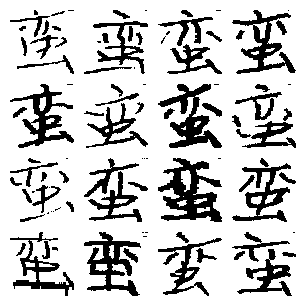 蛮蛮蛮蛮
蛮蛮蛮蛮
蛮蛮蛮蛮
蛮蛮蛮蛮